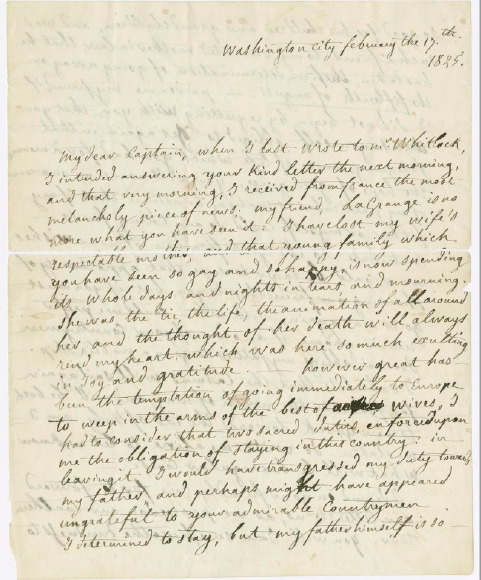 Washington city february the 17th.
1825.
My dear Captain, when I last wrote to mr Whitlock,
I intended answering your kind letter the next morning,
and that very morning, I received from france the most
melancholy piece of news. my friend, LaGrange is no
more what you have seen it! I have lost my wife's
respectable mother, and that young family which
you have seen so gay and so happy, is now spending
its whole days and nights in tears and mourning.
She was the tie, the life, the animation of all around
her, and the thought of her death will always
rend my heart which was here so much exulting
in joy and gratitude. however great has
been the temptation of going immediately to Europe
to weep in the arms of the best of wives, I
had to consider that two sacred duties, enforced upon
me the obligation of staying in this country: in
leaving it I would have transgressed my duty towards
my father and perhaps might have appeared
ungrateful to your admirable Countrymen
I determined to stay, but my father himself is so